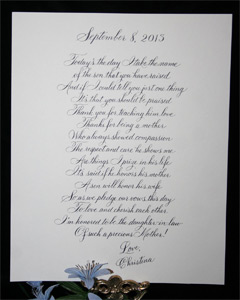 September 8, 2013
Today's the day I take the name
of the son that you have raised
And if I could tell you just one thing
It's that you should be praised
Thank you for teaching him love
Thanks for being a mother
Who always showed compassion
The respect and care he shows me
Are things I prize in his life
It's said if he honors his mother
A son will honor his wife
So as we pledge our vows this day
To love and cherish each other
I'm honored to be the daughter-in-law
Of such a precious Mother!
Love,
Christina